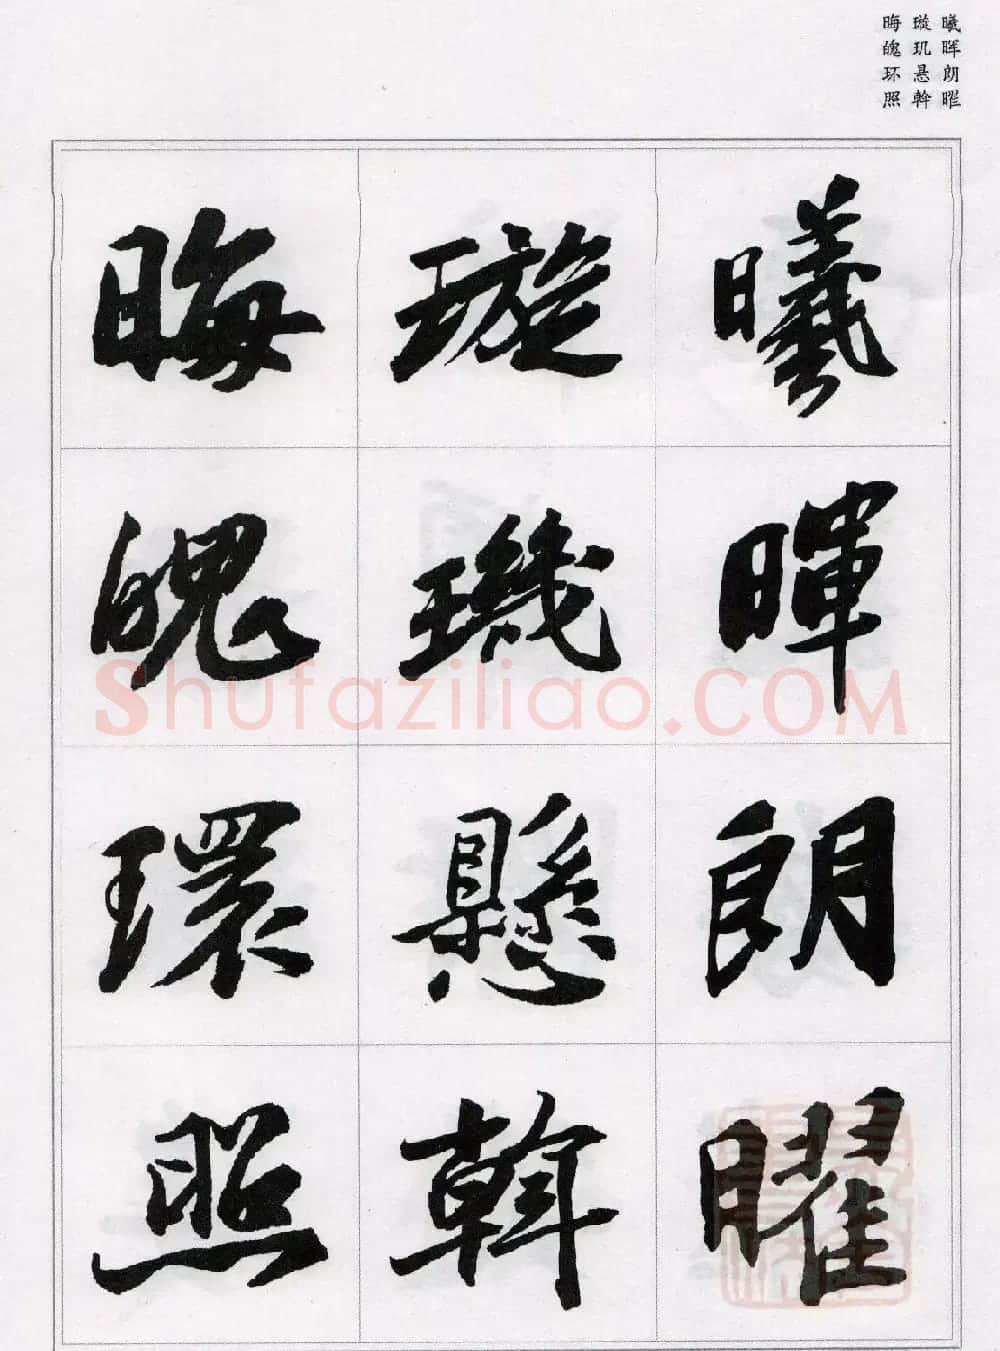 曦晖朗曜
璇玑悬斡
晦魄环照
曦暉朗曜
璇璣懸斡
晦魄環照
Shufaziliao.COM